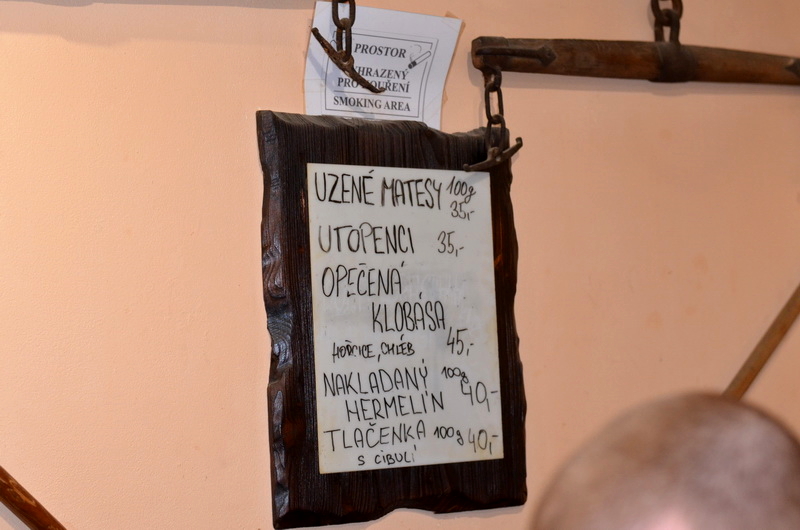 PROSTOR
VYHRAZENÝ
PRO KOUŘENÍ
SMOKING AREA
UZENÉ MATESY 100g
35,-
UTOPENCI 35,-
OPEČENÁ
KLOBÁSA
HOŘČICE, CHLÉB 45,-
NAKLADANÝ 100g
HERMELÍN 40,-
TLAČENKA 100g 40,-
S CIBULÍ